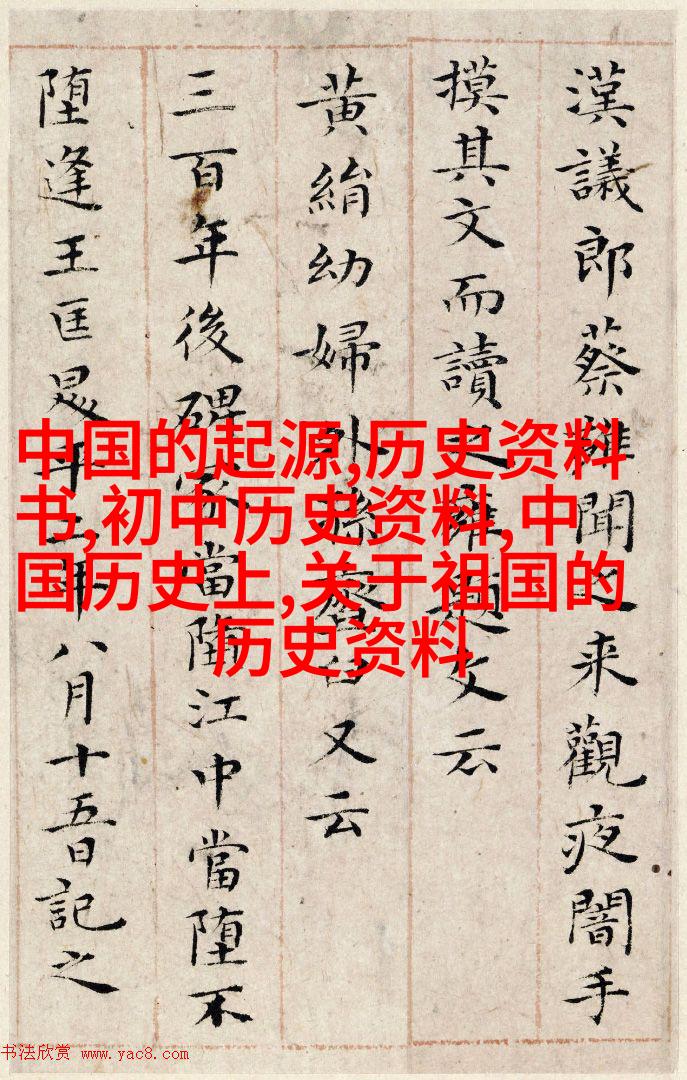 漢議郎蔡雍聞之来觀夜闇手
摸其文而讀之雍題文云
黄絹幼婦外孫齏臼又云
三百年後碑冢當墮江中當堕不
堕逢王匡昇平二年八月十五日記之
中国的起源,历史资料
书,初中历史资料,中
国历史上,关于祖国的
历史资料
书法欣赏 www.yac8.com